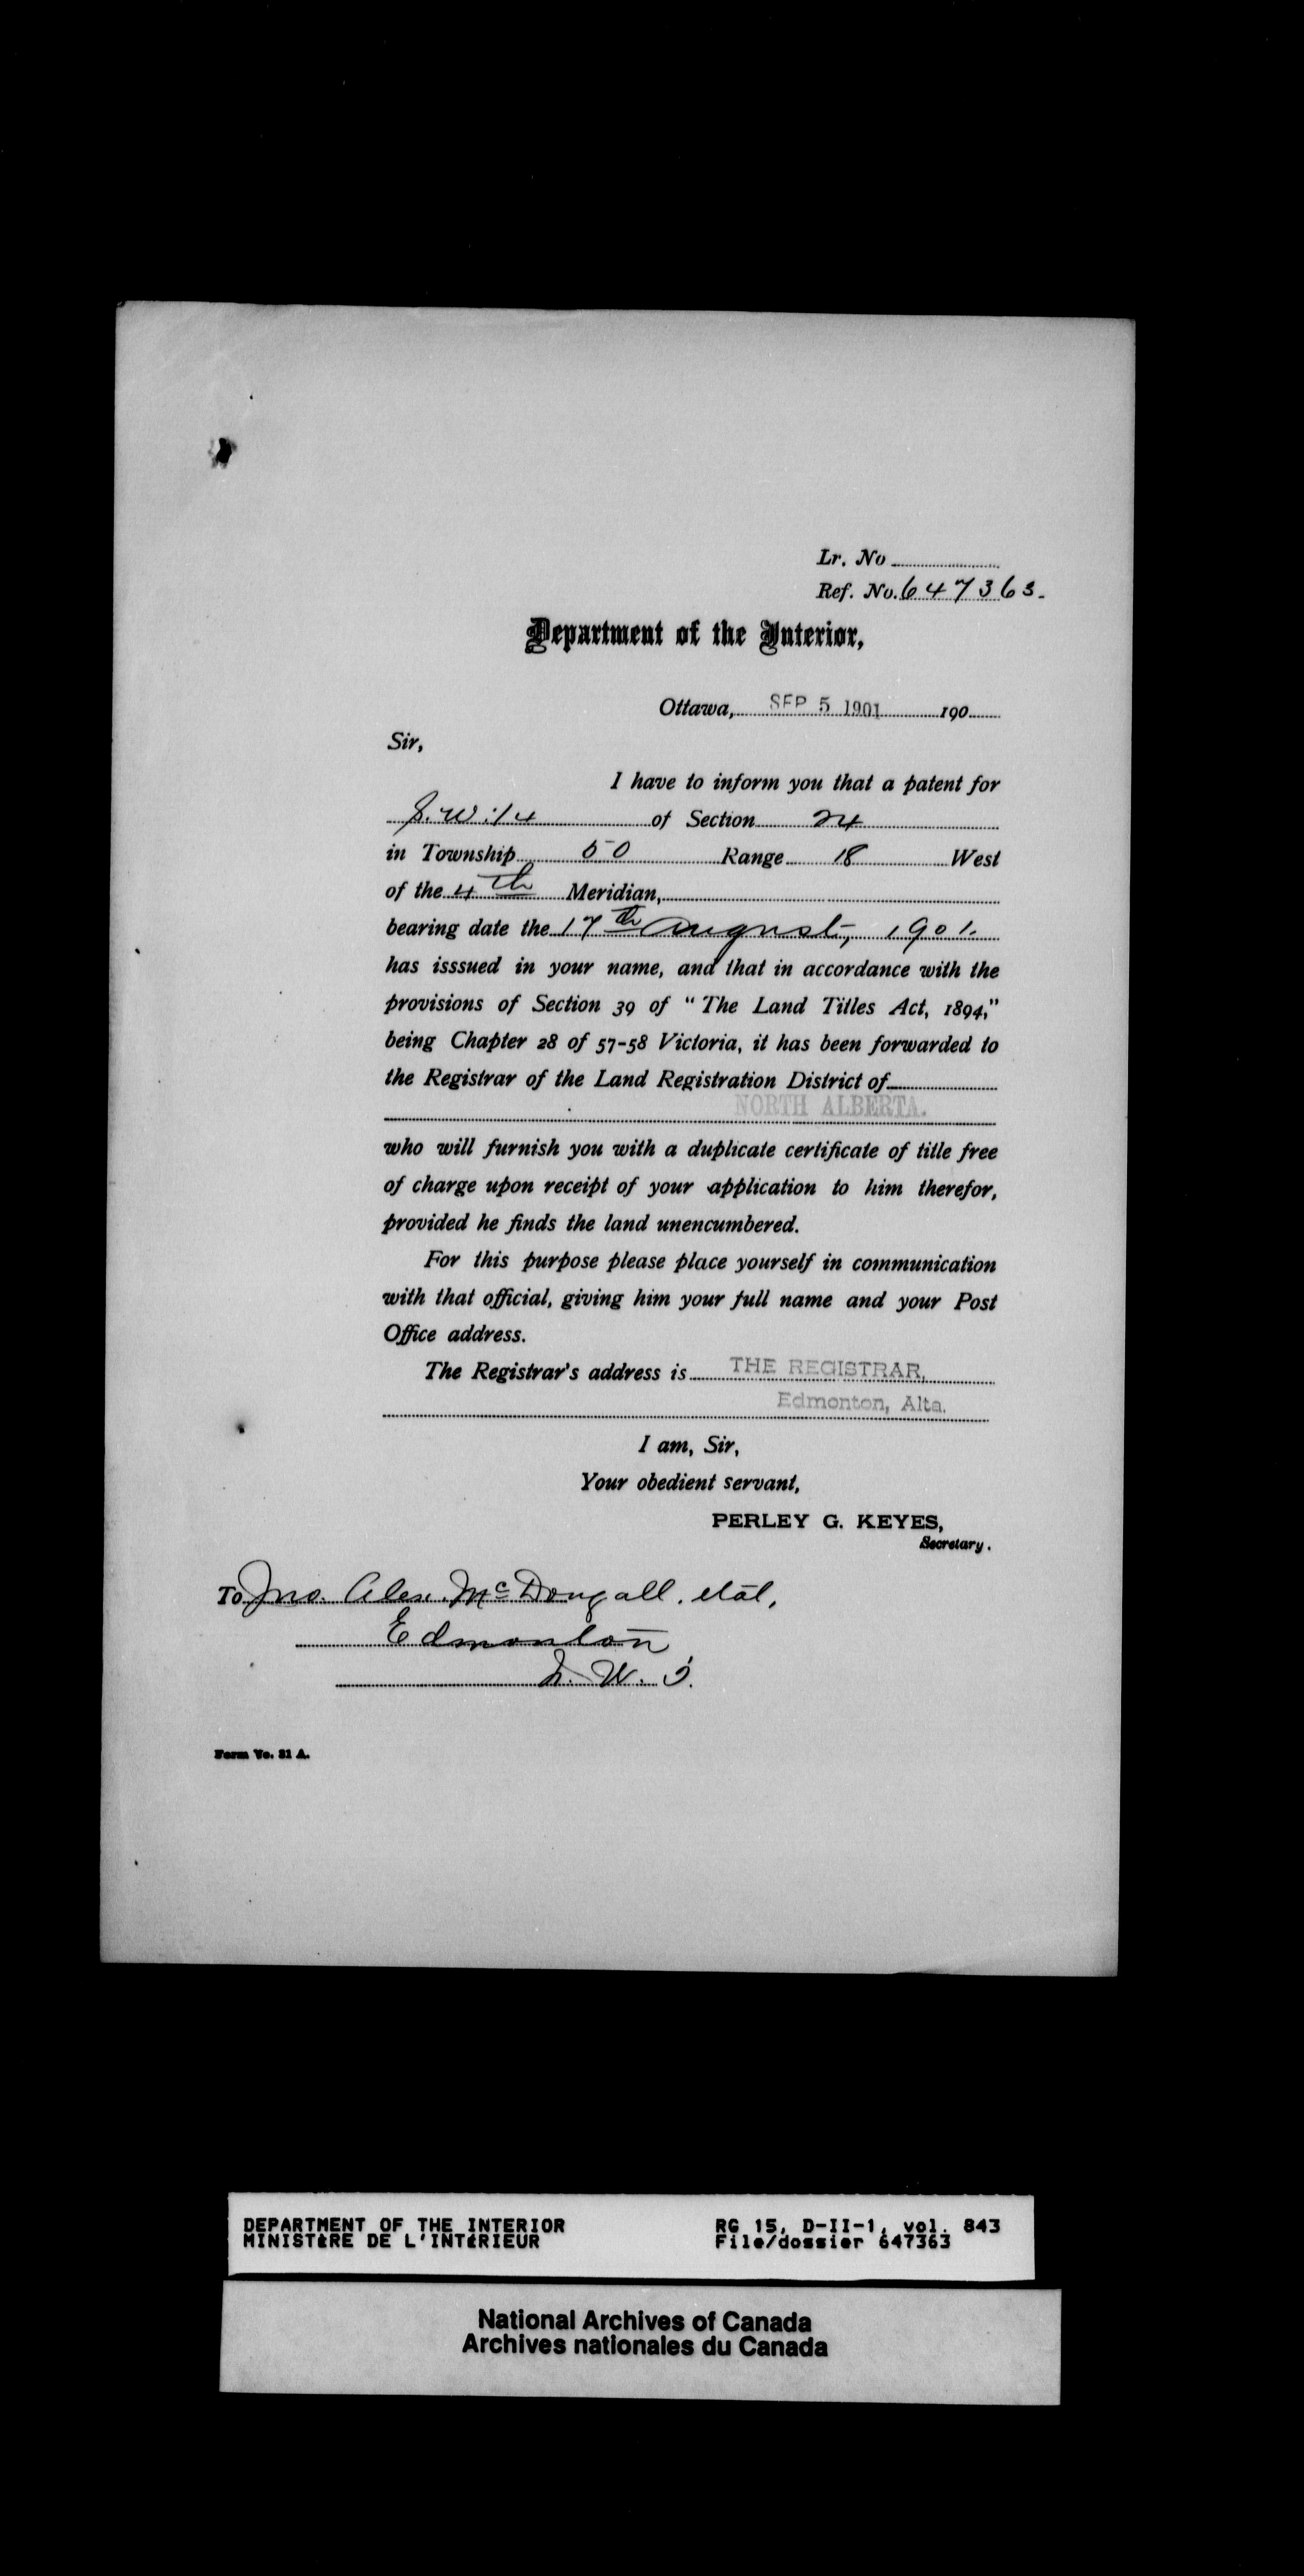 Lr. No
Ref. No. 647363.
Department of the Interior,
Ottawa, SEP 5 1901 190
Sir,
I have to inform you that a patent for
S. W. 1/4 of Section 24
in Township 50 Range 18 West
of the 4th Meridian,
bearing date the 17th August, 1901.
has isssued in your name, and that in accordance with the
provisions of Section 39 of "The Land Titles Act, 1894,"
being Chapter 28 of 57-58 Victoria, it has been forwarded to
the Registrar of the Land Registration District of
NORTH ALBERTA.
who will furnish you with a duplicate certificate of title free
of charge upon receipt of your application to him therefor,
provided he finds the land unencumbered.
For this purpose please place yourself in communication
with that official, giving him your full name and your Post
Office address.
The Registrar's address is THE REGISTRAR,
Edmonton, Alta.
I am, Sir,
Your obedient servant,
PERLEY G. KEYES,
Secretary.
To Jno. Alex. McDougall. etal,
Edmonton
N. W. T.
Form No. 31 A.
DEPARTMENT OF THE INTERIOR RG 15, D-II-1, vol. 843
MINISTÈRE DE L'INTÉRIEUR File/dossier 647363
National Archives of Canada
Archives nationales du Canada